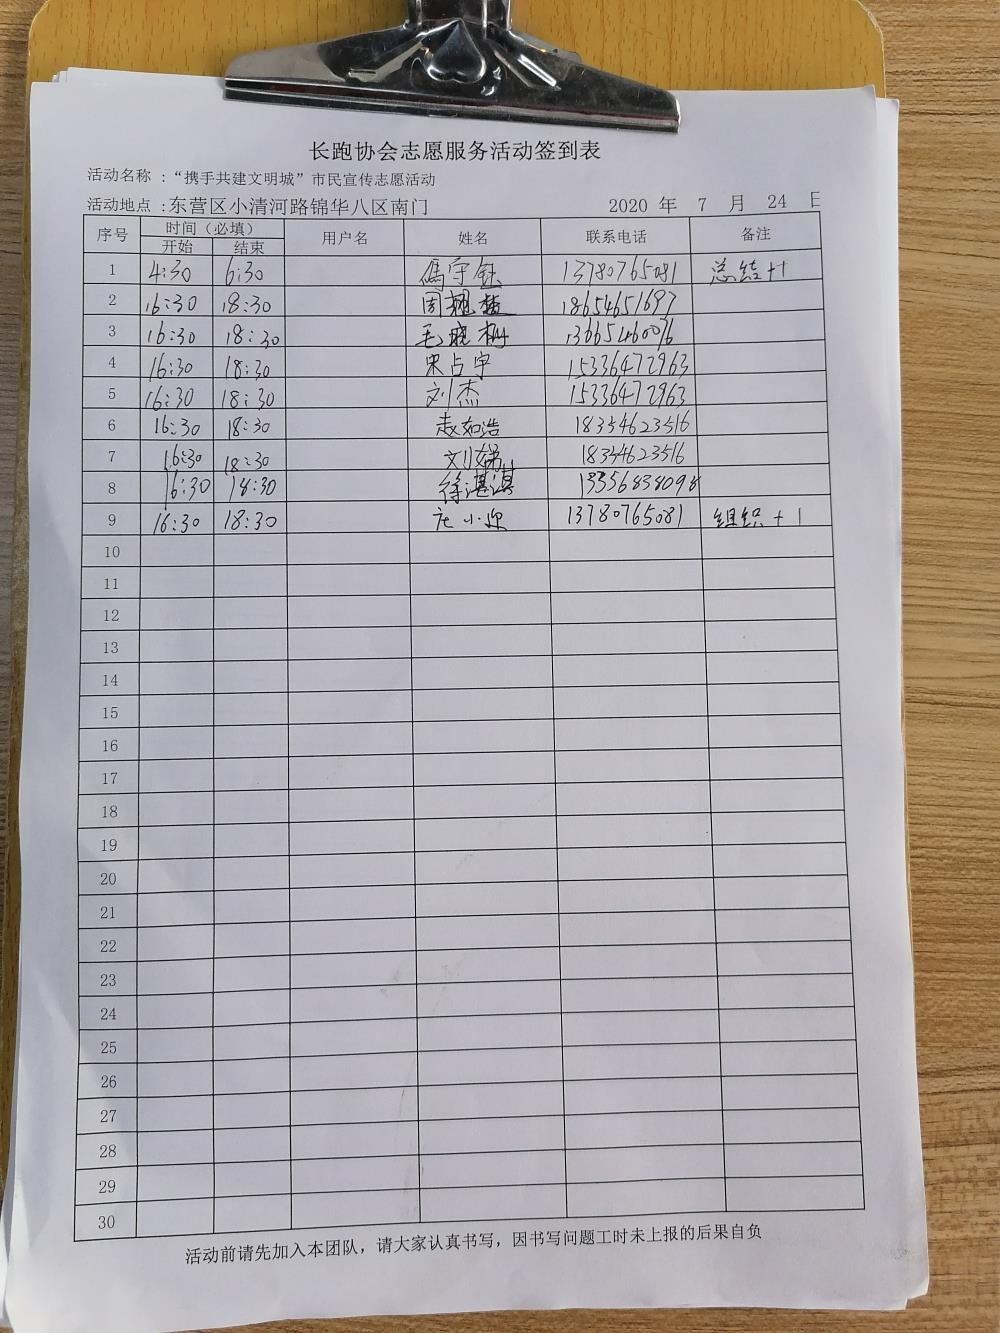 长跑协会志愿服务活动签到表
活动名称：“携手共建文明城”市民宣传志愿活动
活动地点：东营区小清河路锦华八区南门 2020 年 7 月 24 日
序号 时间（必填） 用户名 姓名 联系电话 备注
开始 结束
1 4:30 6:30 13780765081 总结+1
2 16:30 18:30 18654651697
3 16:30 18:30 毛晓 13665460076
4 16:30 18:30 宋占宇 15336472963
5 16:30 18:30 刘杰 15336472963
6 16:30 18:30 赵如浩 18354623516
7 16:30 18:30 刘娣 18354623516
8 16:30 18:30 徐湛淇 13356838098
9 16:30 18:30 小 13780765081 组织+1
10
11
12
13
14
15
16
17
18
19
20
21
22
23
24
25
26
27
28
29
30
活动前请先加入本团队，请大家认真书写，因书写问题工时未上报的后果自负